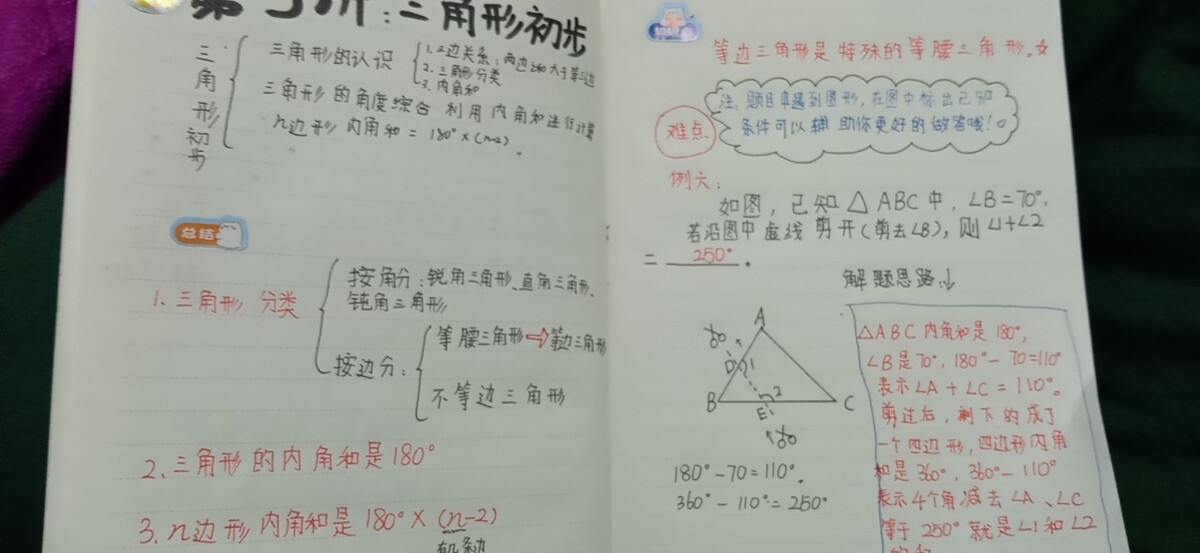 第5讲:三角形初步
三角形初步
三角形的认识
1.三边关系:两边之和大于第三边
2.三角形分类
3.内角和
三角形的角度综合 利用内角和进行计算
n边形内角和=180°×(n-2)。
总结
1.三角形分类
按角分:锐角三角形、直角三角形、
钝角三角形
按边分:
等腰三角形⇨等边三角形
不等边三角形
2.三角形的内角和是180°
3.n边形内角和是180°×(n-2)
等边三角形是特殊的等腰三角形.☆
难点
注:题目中遇到图形,在图中标出已知
条件可以辅助你更好的做答哦!。
例六:
如图,已知△ABC中,∠B=70°,
若沿图中虚线剪开(剪去∠B),则∠1+∠2
=250°。
解题思路↓
A
D 1
B E 2 C
180°-70=110°.
360°-110°=250°
△ABC内角和是180°,
∠B是70°,180°-70=110°
表示∠A+∠C=110°。
剪过后,剩下的成了
一个四边形,四边形内角
和是360°,360°-110°
表示4个角减去∠A、∠C
等于250°就是∠1和∠2